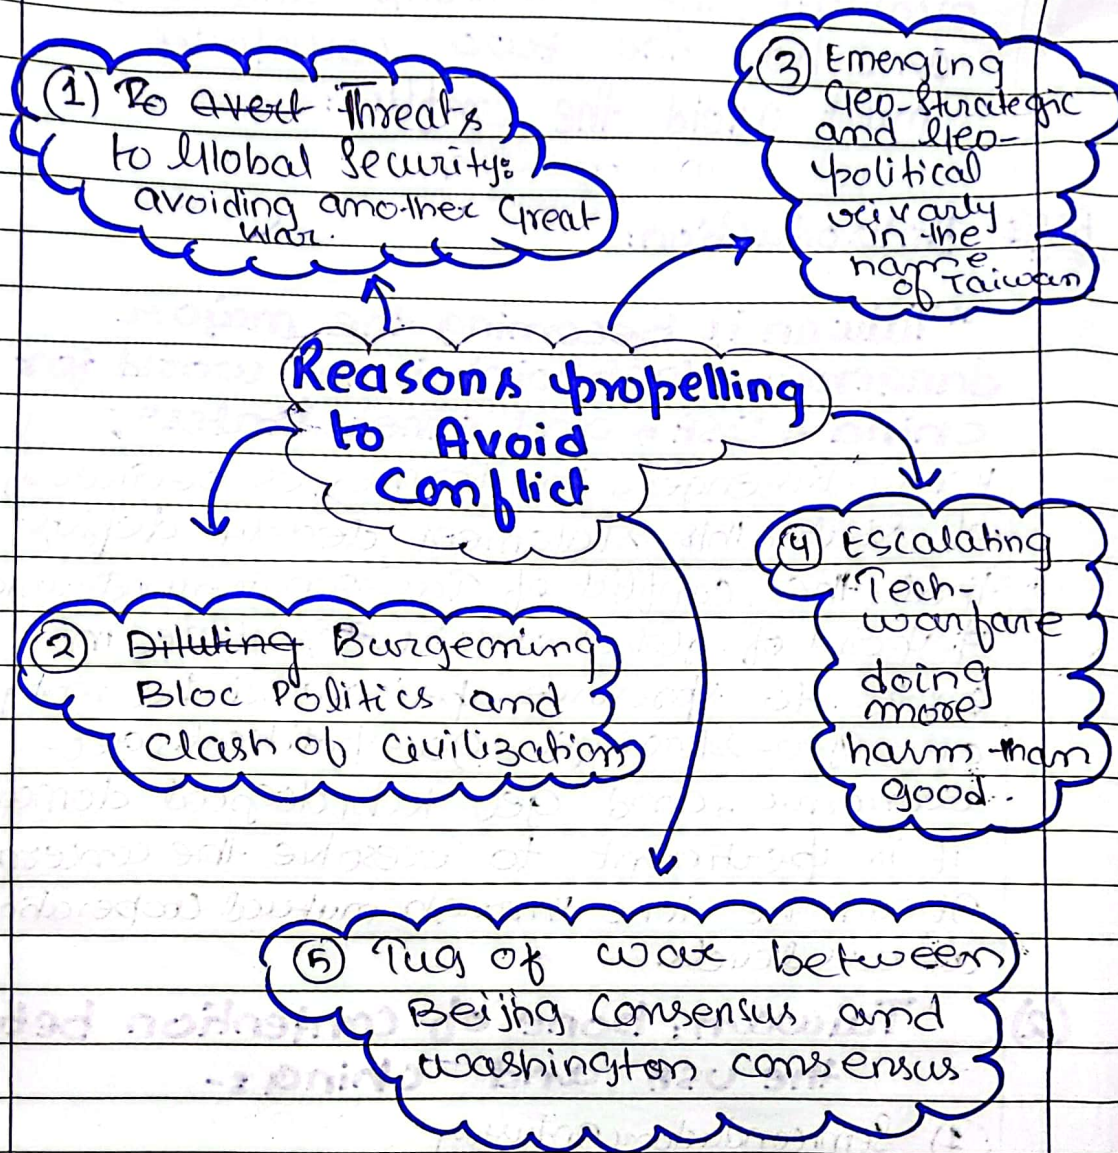 (1) To Avert Threats
to Global Security:
avoiding another Great
war.
(3) Emerging
Geo-Strategic
and Geo-
political
rivarly
in the
name
of Taiwan
Reasons propelling
to Avoid
Conflict
(2) Diluting Burgeoning
Bloc Politics and
Clash of Civilization
(4) Escalating
"Tech-
warfare
doing
more
harm than
good.
(5) Tug of war between
Beijing Consensus and
Washington consensus